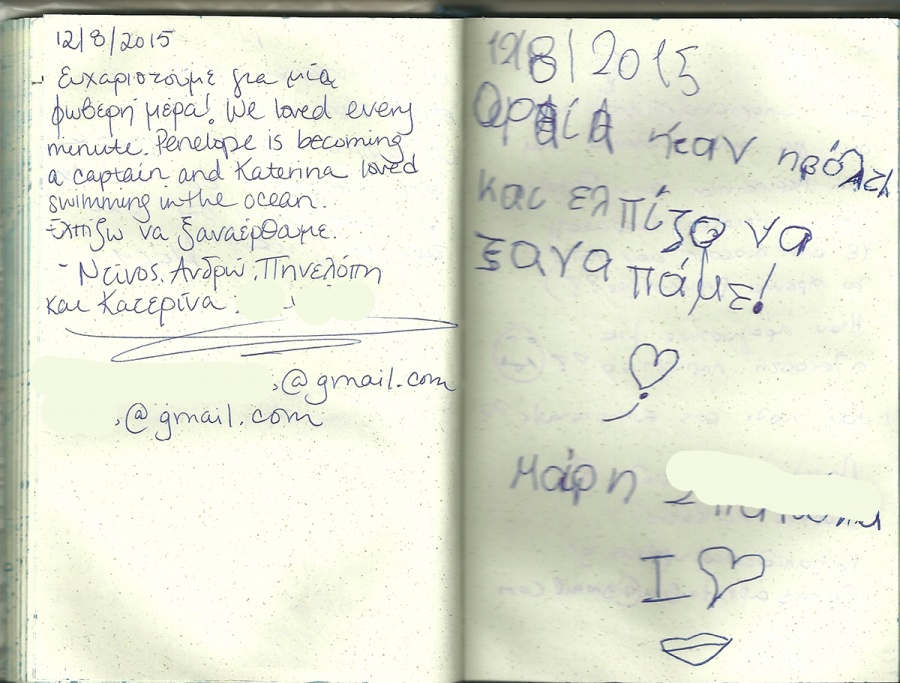 12/8/2015
Ευχαριστούμε για μία
φωβερή μέρα! We loved every
minute. Penelope is becoming
a captain and Katerina loved
swimming in the ocean.
να ξαναέρθαμε.
- Ντίνος. Ανδρω. Πηνελόπη
και Κατερίνα
@gmail.com
@gmail.com
12/8/2015
Οραία ήταν
και ελπίζο να
ξανα πάμε!
Μάρη
I